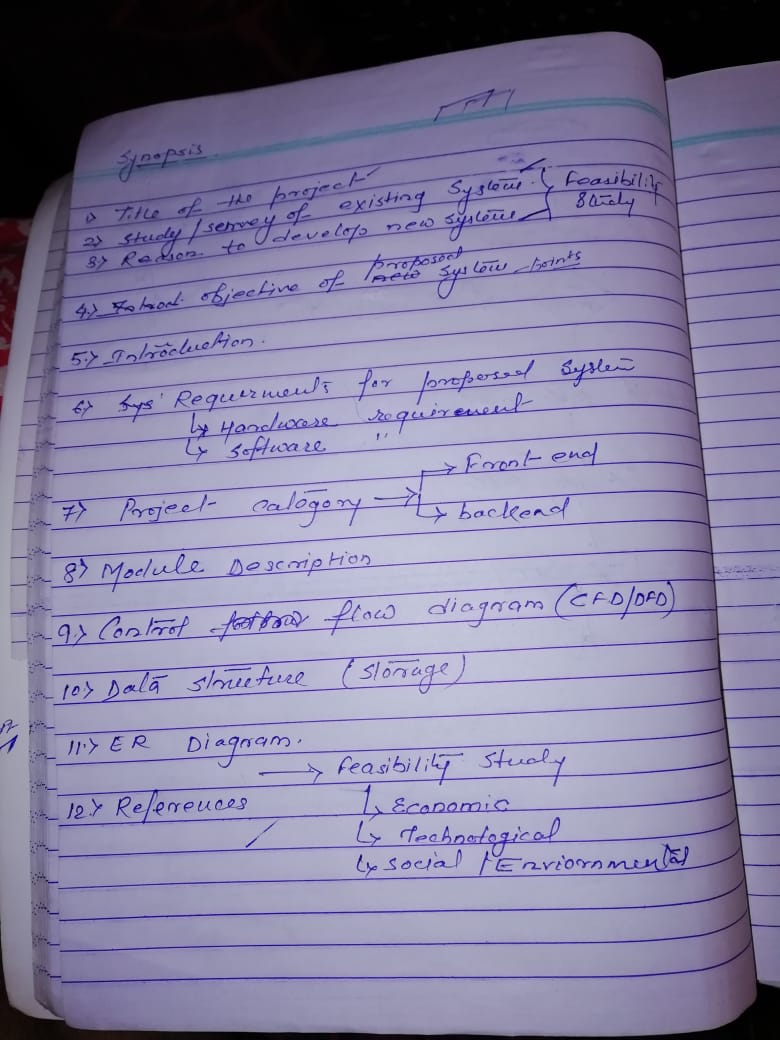 Synopsis
1) Title of the project
2) Study / servey of existing System
3) Reason to develop new system
Feasibility
Study
4.) objective of proposed System points
5.) Introduction.
6) Sys' Requirments for proposed System
↳ Hardware requirement
↳ Software "
7) Project Catogory → Front end
↳ backend
8) Module Description
9.) Control flow diagram (CFD/DFD)
10.) Data structure (Storage)
11.) ER Diagram.
→ feasibility study
12.) References
↳ Economic
↳ Technological
↳ Social / Enviornmental